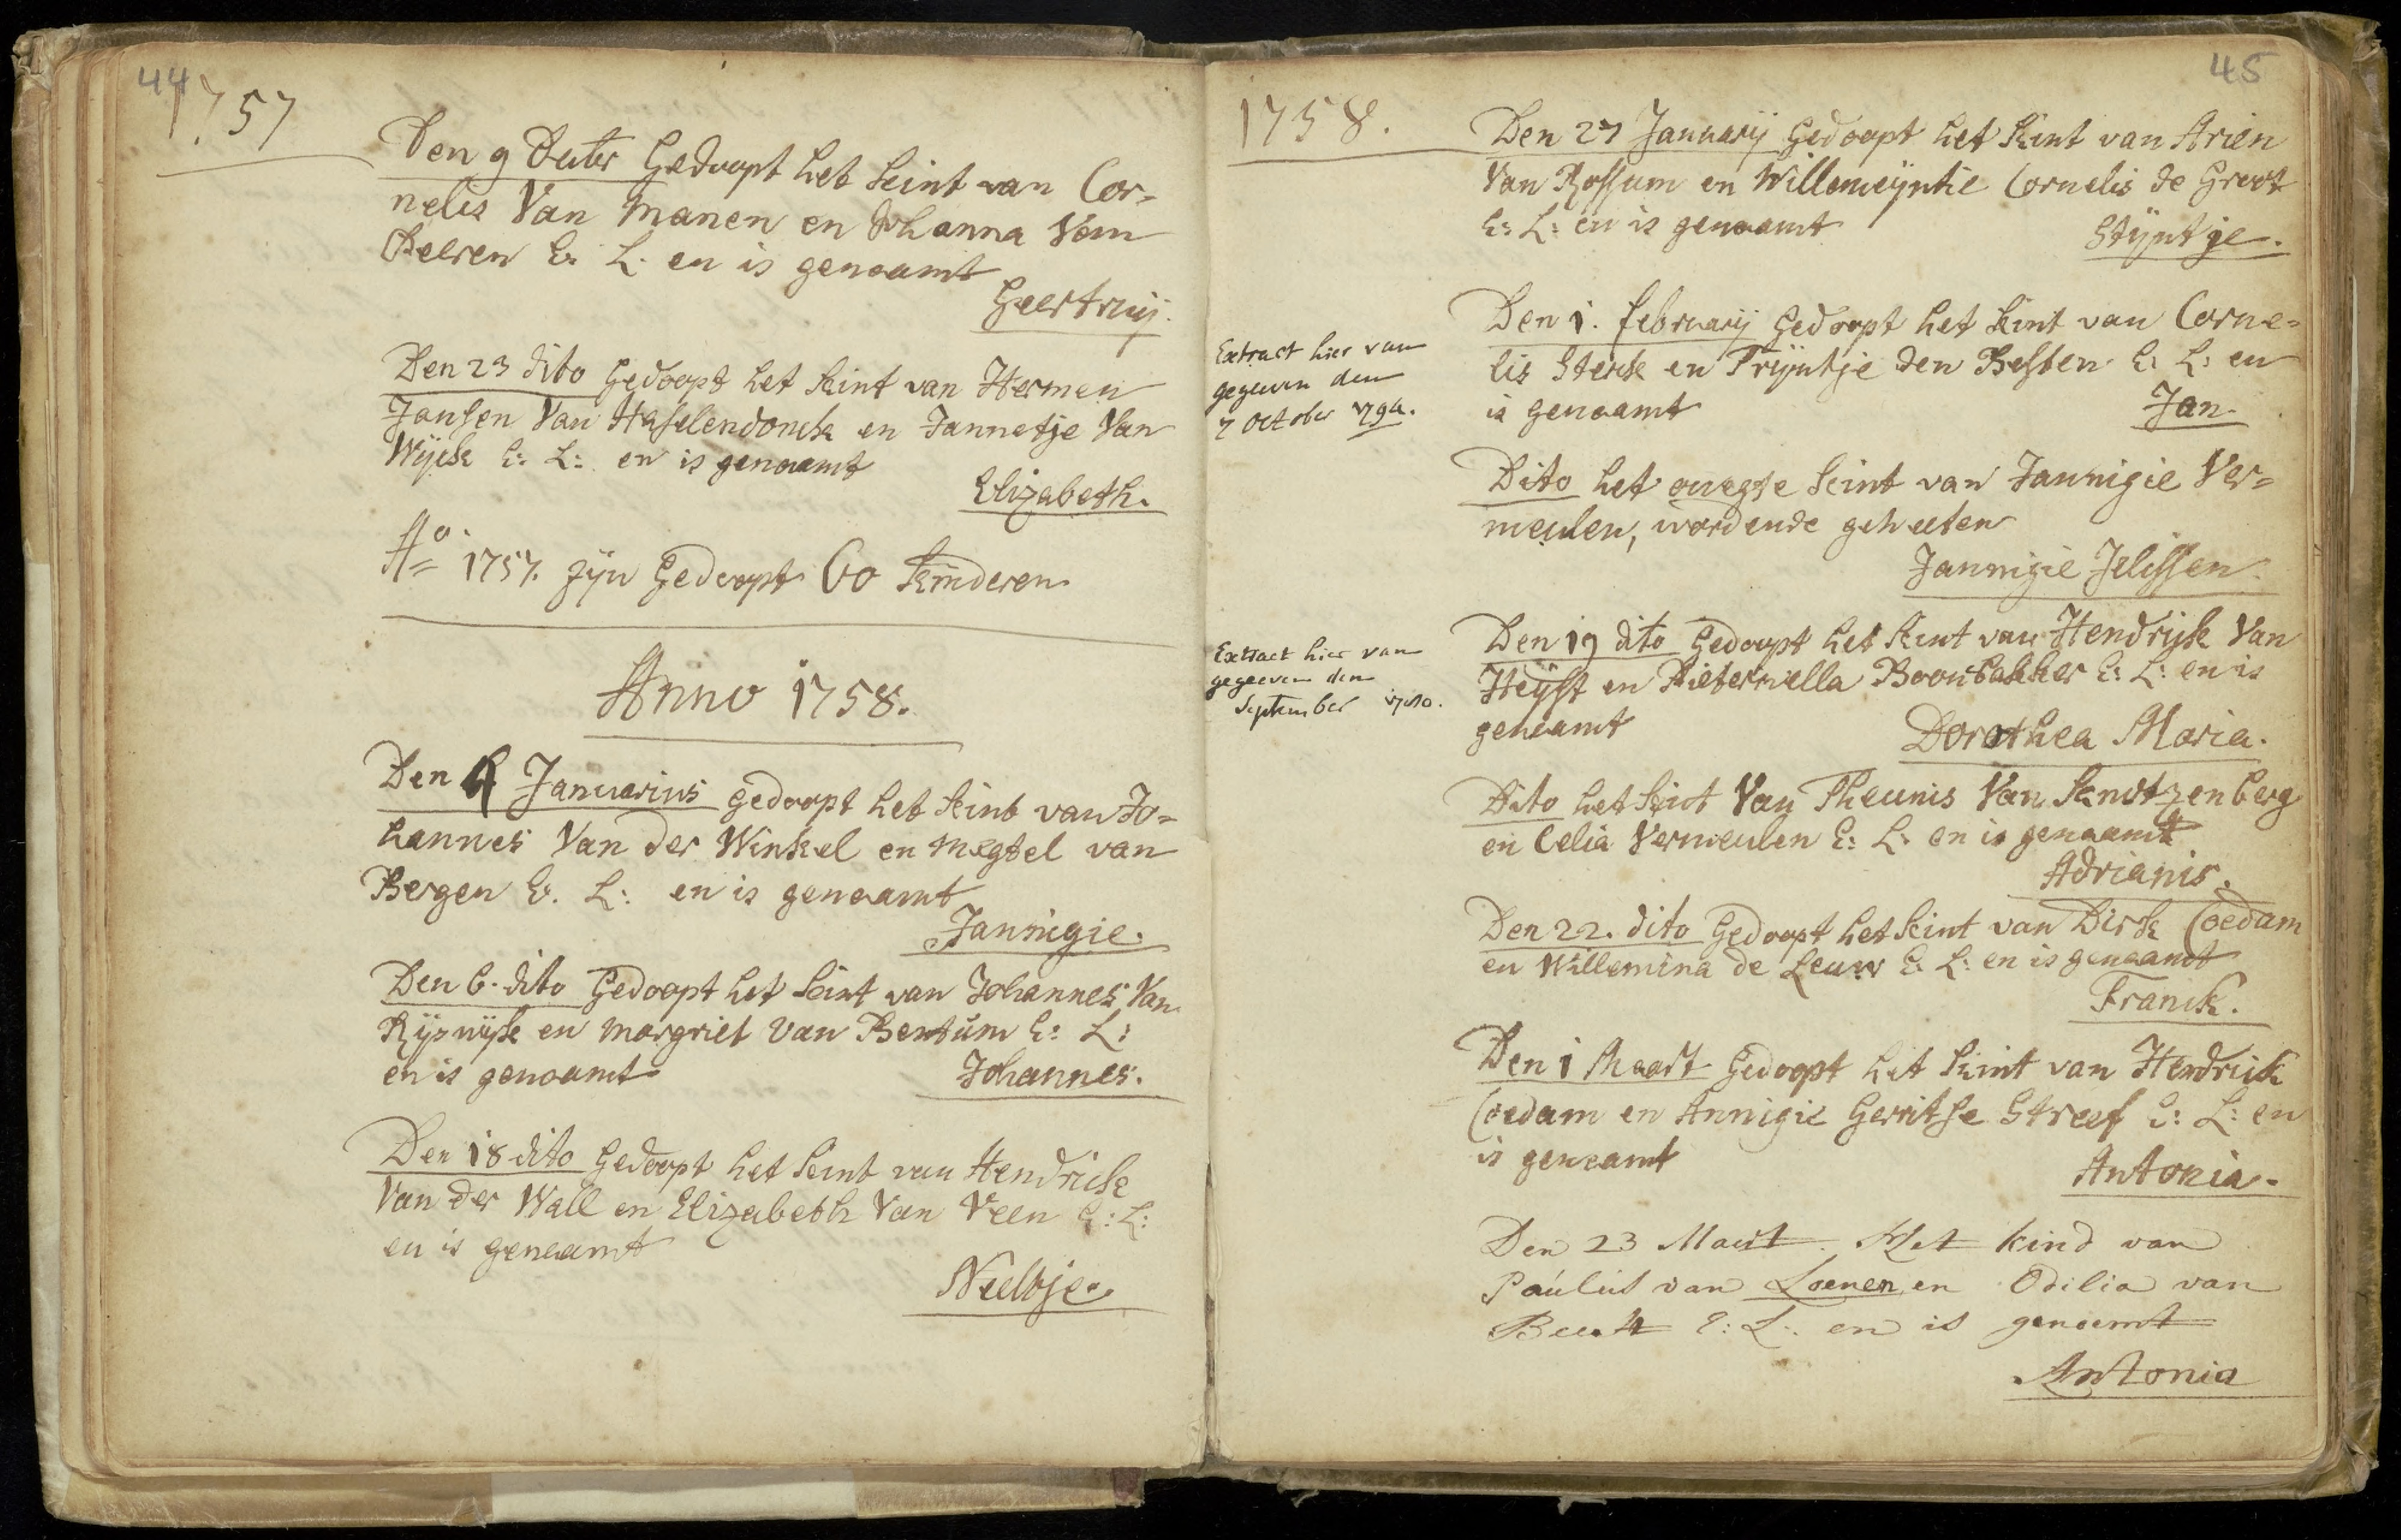 44
1757
Den 9 Deceber Gedoopt het kint van Cor=
nelis Van Manen en Johanna Vom
Deelen E. L. en is genaamt
Geertruij.
Den 23 dito Gedoopt het kint van Hermen
Jansen Van Hasselendonck en Jannetje Van
Wijck E: L: en is genaamt
Elizabeth.
Ao 1757. zijn Gedoopt 60 kinderen
Anno 1758.
Den 4 Januarius gedoopt het kint van Jo=
hannes Van der Winkel en Megtel van
Bergen E. L: en is genaamt
Jannigie.
Den 6. dito Gedoopt het kint van Johannes Van
Rijswijk en Margriet Van Bentum E: L:
en is genaamt Johannes.
Den 18 dito Gedoopt het kint van Hendrick
Van der Wall en Elizabeth Van Veen E: L:
en is genaamt
Neeltje.
45
1758.
Den 27 Januarij Gedoopt het kint van Arien
Van Rossum en Willemeijntie Cornelis de Groot
E: L: en is genaamt Stijntje.
Extract hier van
gegeven den
7 October 1794.
Den 1. februarij Gedoopt het kint van Corne=
lis Sterk en Trijntje den Besten E: L: en
is genaamt Jan.
Dito het onegte kint van Jannigie Ver=
meulen, wordende geheeten
Jannigie Jelissen.
Extract hier van
gegeeven den
September
Den 19 dito Gedoopt het kint van Hendrik Van
Heijst en Pieternella Boonbakker E: L: en is
genaamt Dorothea Maria.
Dito het kint Van Theunis Van Sandtzenberg
en Celia Vermeulen E: L: en is genaamt
Adrianis.
Den 22. dito Gedoopt het kint van Dirk Coedam
en Willemina de Leuw E: L: en is genaamt
Franck.
Den 1 Maart Gedoopt het kint van Hendrick
Coedam en Annigie Gerritse Streef E: L: en
is genaamt Antonia.
Den 23 Maart. Het kind van
Paulus van Loenen en Odilia van
E: L: en is genaemt
Antonia